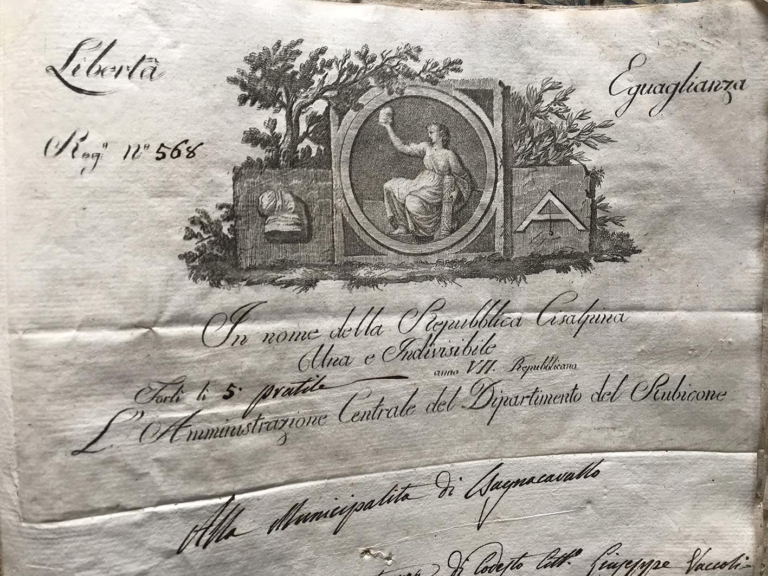 Libertà
Eguaglianza
Reg.º n.º 568
In nome della Repubblica Cisalpina
Una e Indivisibile
anno VII. Repubblicano
Forlì li 5 pratile
L'Amministrazione Centrale del Dipartimento del Rubicone
Alla Municipalità di Bagnacavallo
di Codesto Citt.º Giuseppe Vaccoli